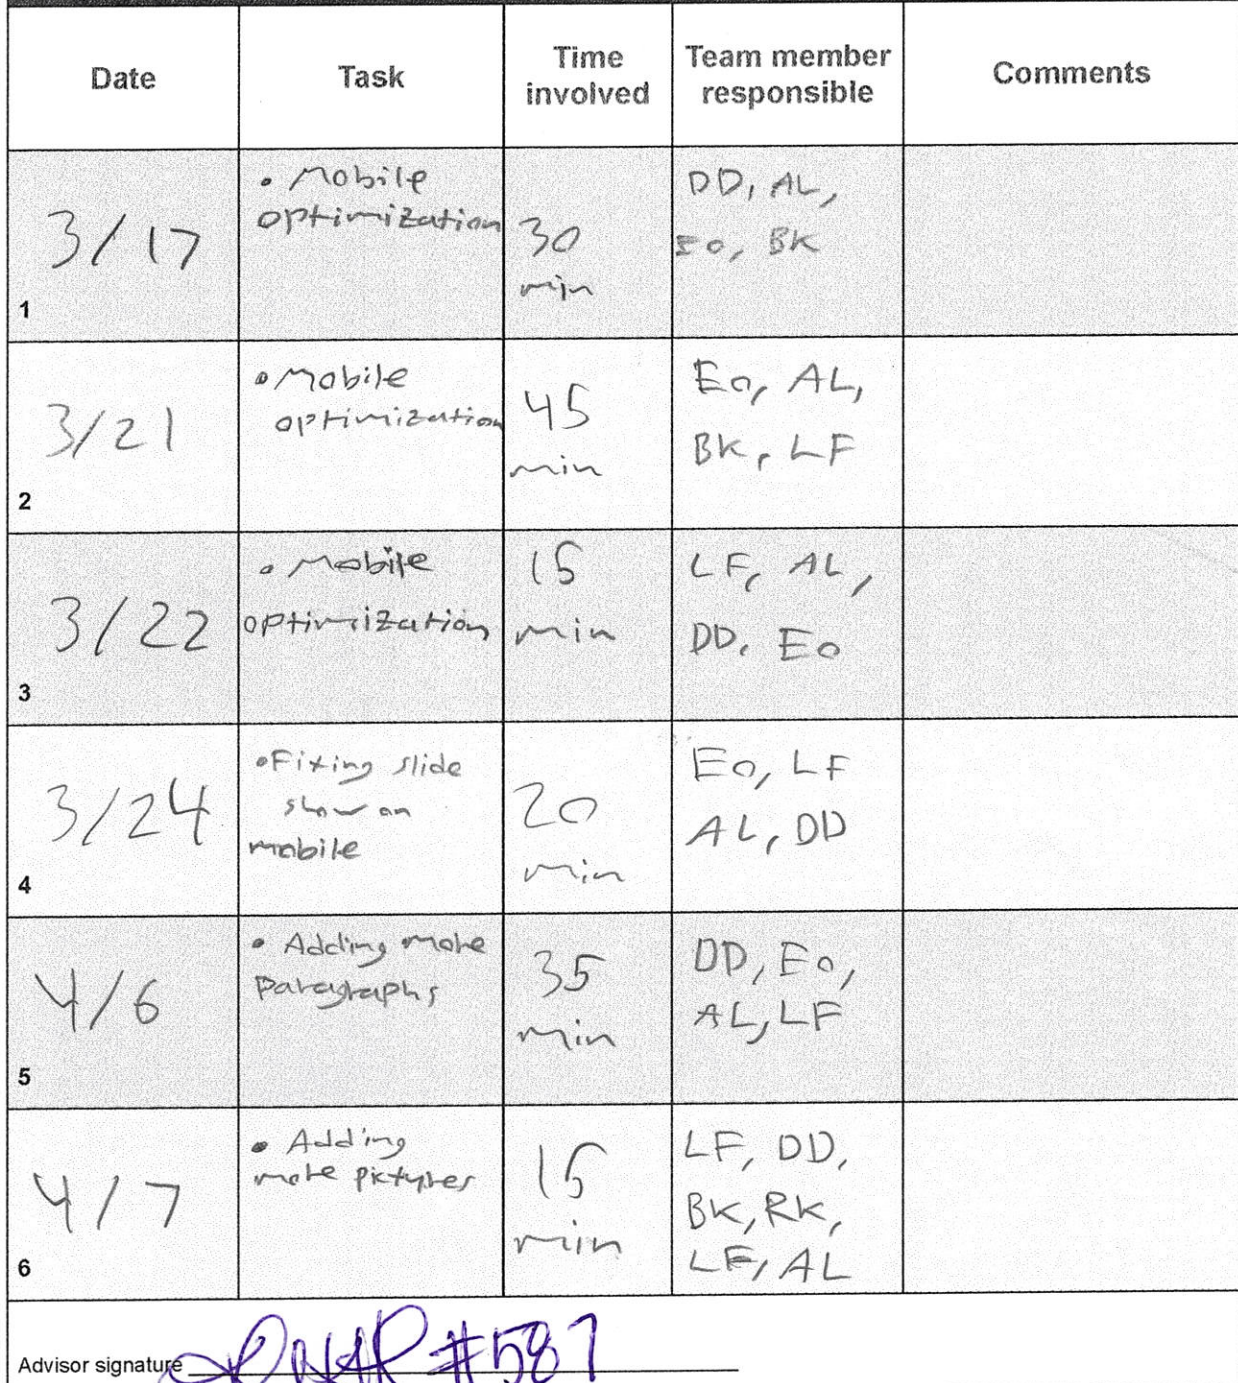 Date Task Time involved Team member responsible Comments
1 3/17 • Mobile optimization 30 min DD, AL, EO, BK
2 3/21 • Mobile optimization 45 min EO, AL, BK, LF
3 3/22 • Mobile optimization 15 min LF, AL, DD, EO
4 3/24 • Fixing slide show on mobile 20 min EO, LF AL, DD
5 4/6 • Adding more Paragraphs 35 min DD, EO, AL, LF
6 4/7 • Adding more pictures 15 min LF, DD, BK, RK, LF, AL
Advisor signature #587